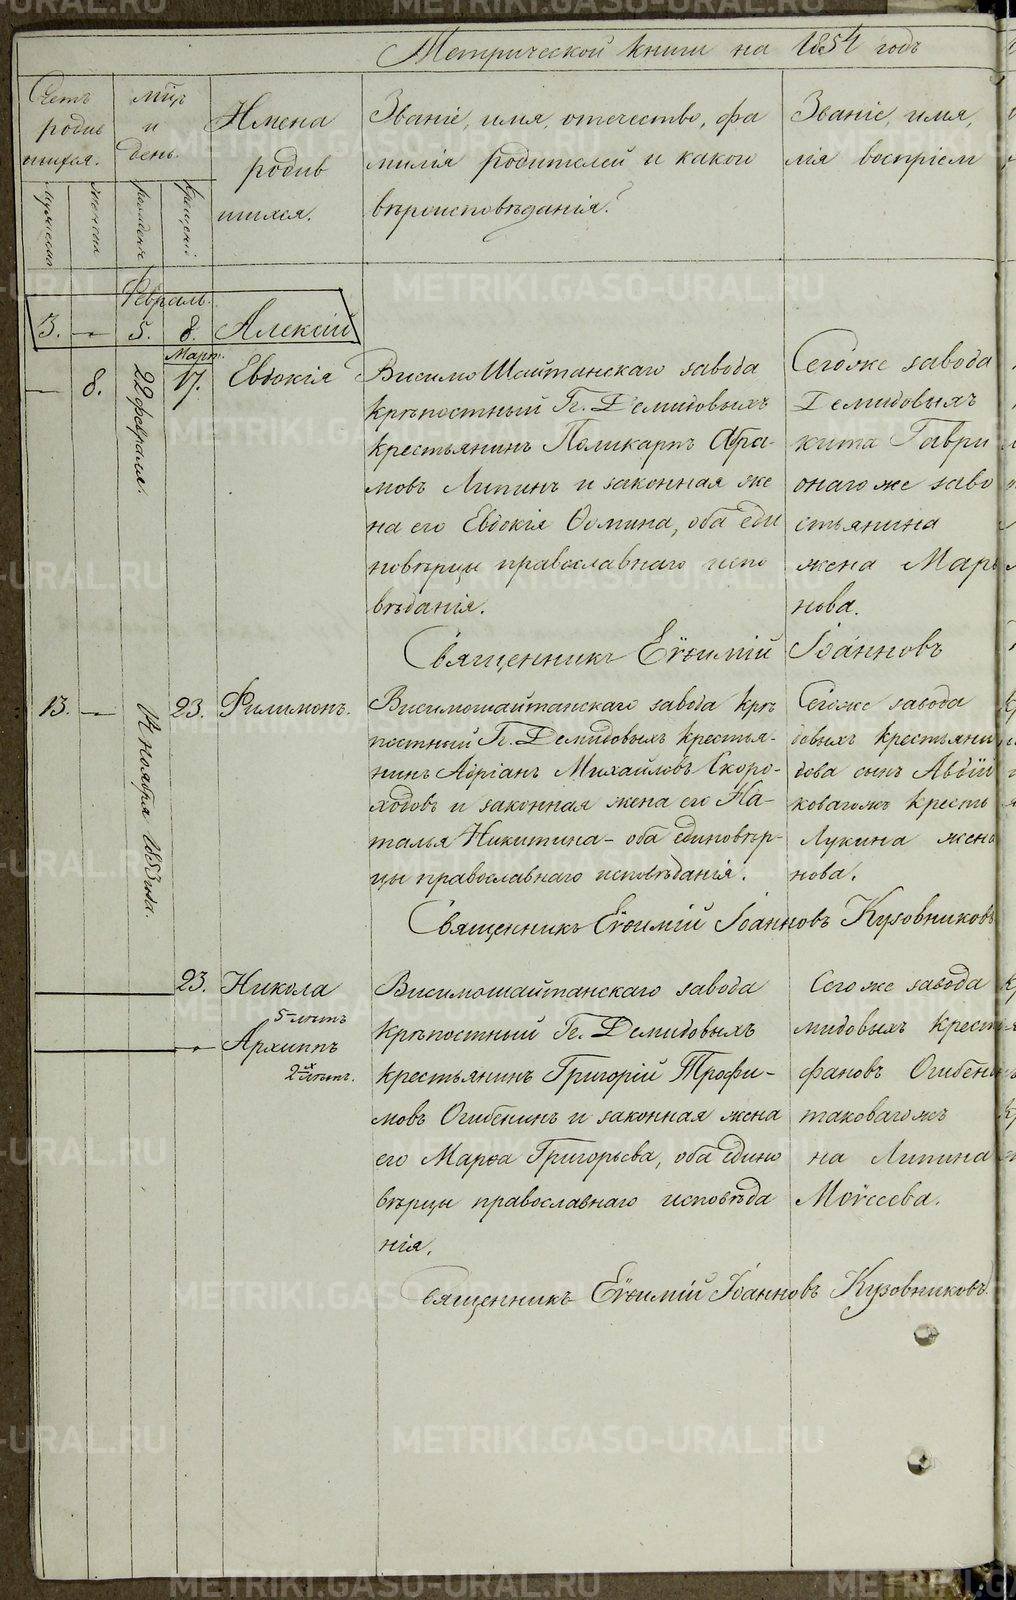 Метрической книги на 1854 годъ
Счетъ родив шихся.
мѣц. и день.
Имена родив шихся.
Званіе, имя, отечество, фа
милія родителей и какои
вѣроисповѣданія?
Званіе, имя,
лія воспріем
Феврал.
3. — 5. 8. Алексій
Март.
— 8. 22 февраля. 17. Евдокія
Висимо Шайтанскаго завода
крѣпостный Гг. Демидовыхъ
крестьянинъ Поликарпъ Абра-
мовъ Липинъ и законная же
на его Евдокія Ѳомина, оба еди
новѣрцы православнаго испо
вѣданія.
Сегоже завода
Демидовыхъ
кита Гаври
онагоже заво
стьянина
жена Марѳ
нова.
Священникъ Еѵѳимій Іоанновъ
13. — 14 ноября 1853 года. 23. Филимонъ.
Висимошайтанскаго завода крѣ
постный Гг. Демидовыхъ крестья-
нинъ Адріанъ Михайловъ Скоро-
ходовъ и законная жена его На-
талья Никитина — оба единовѣр-
цы православнаго исповѣданія.
Сегоже завода
довыхъ крестьяни
дова сынъ Авдій
коваго жъ кресть
Лукина жена
нова.
Священникъ Еѵѳимій Іоанновъ Кузовниковъ
23. Никола
5 лѣтъ
Архиппъ
2хъ лѣтъ.
Висимошайтанскаго завода
крѣпостный Гг. Демидовыхъ
крестьянинъ Григорій Трофи-
мовъ Огибенинъ и законная жена
его Марѳа Григорьева, оба едино
вѣрцы православнаго исповѣда
нія.
Сегоже завода
мидовыхъ крест
фановъ Огибени
таковаго жъ
на Липина
Моѵсеева.
Священникъ Еѵѳимій Іоанновъ Кузовниковъ
METRIKI.GASO-URAL.RU